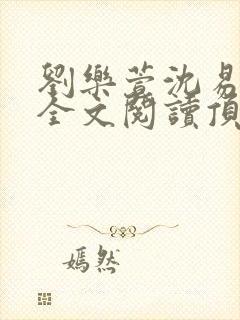 劉樂萱沈易
全文閱讀頂
嫣然